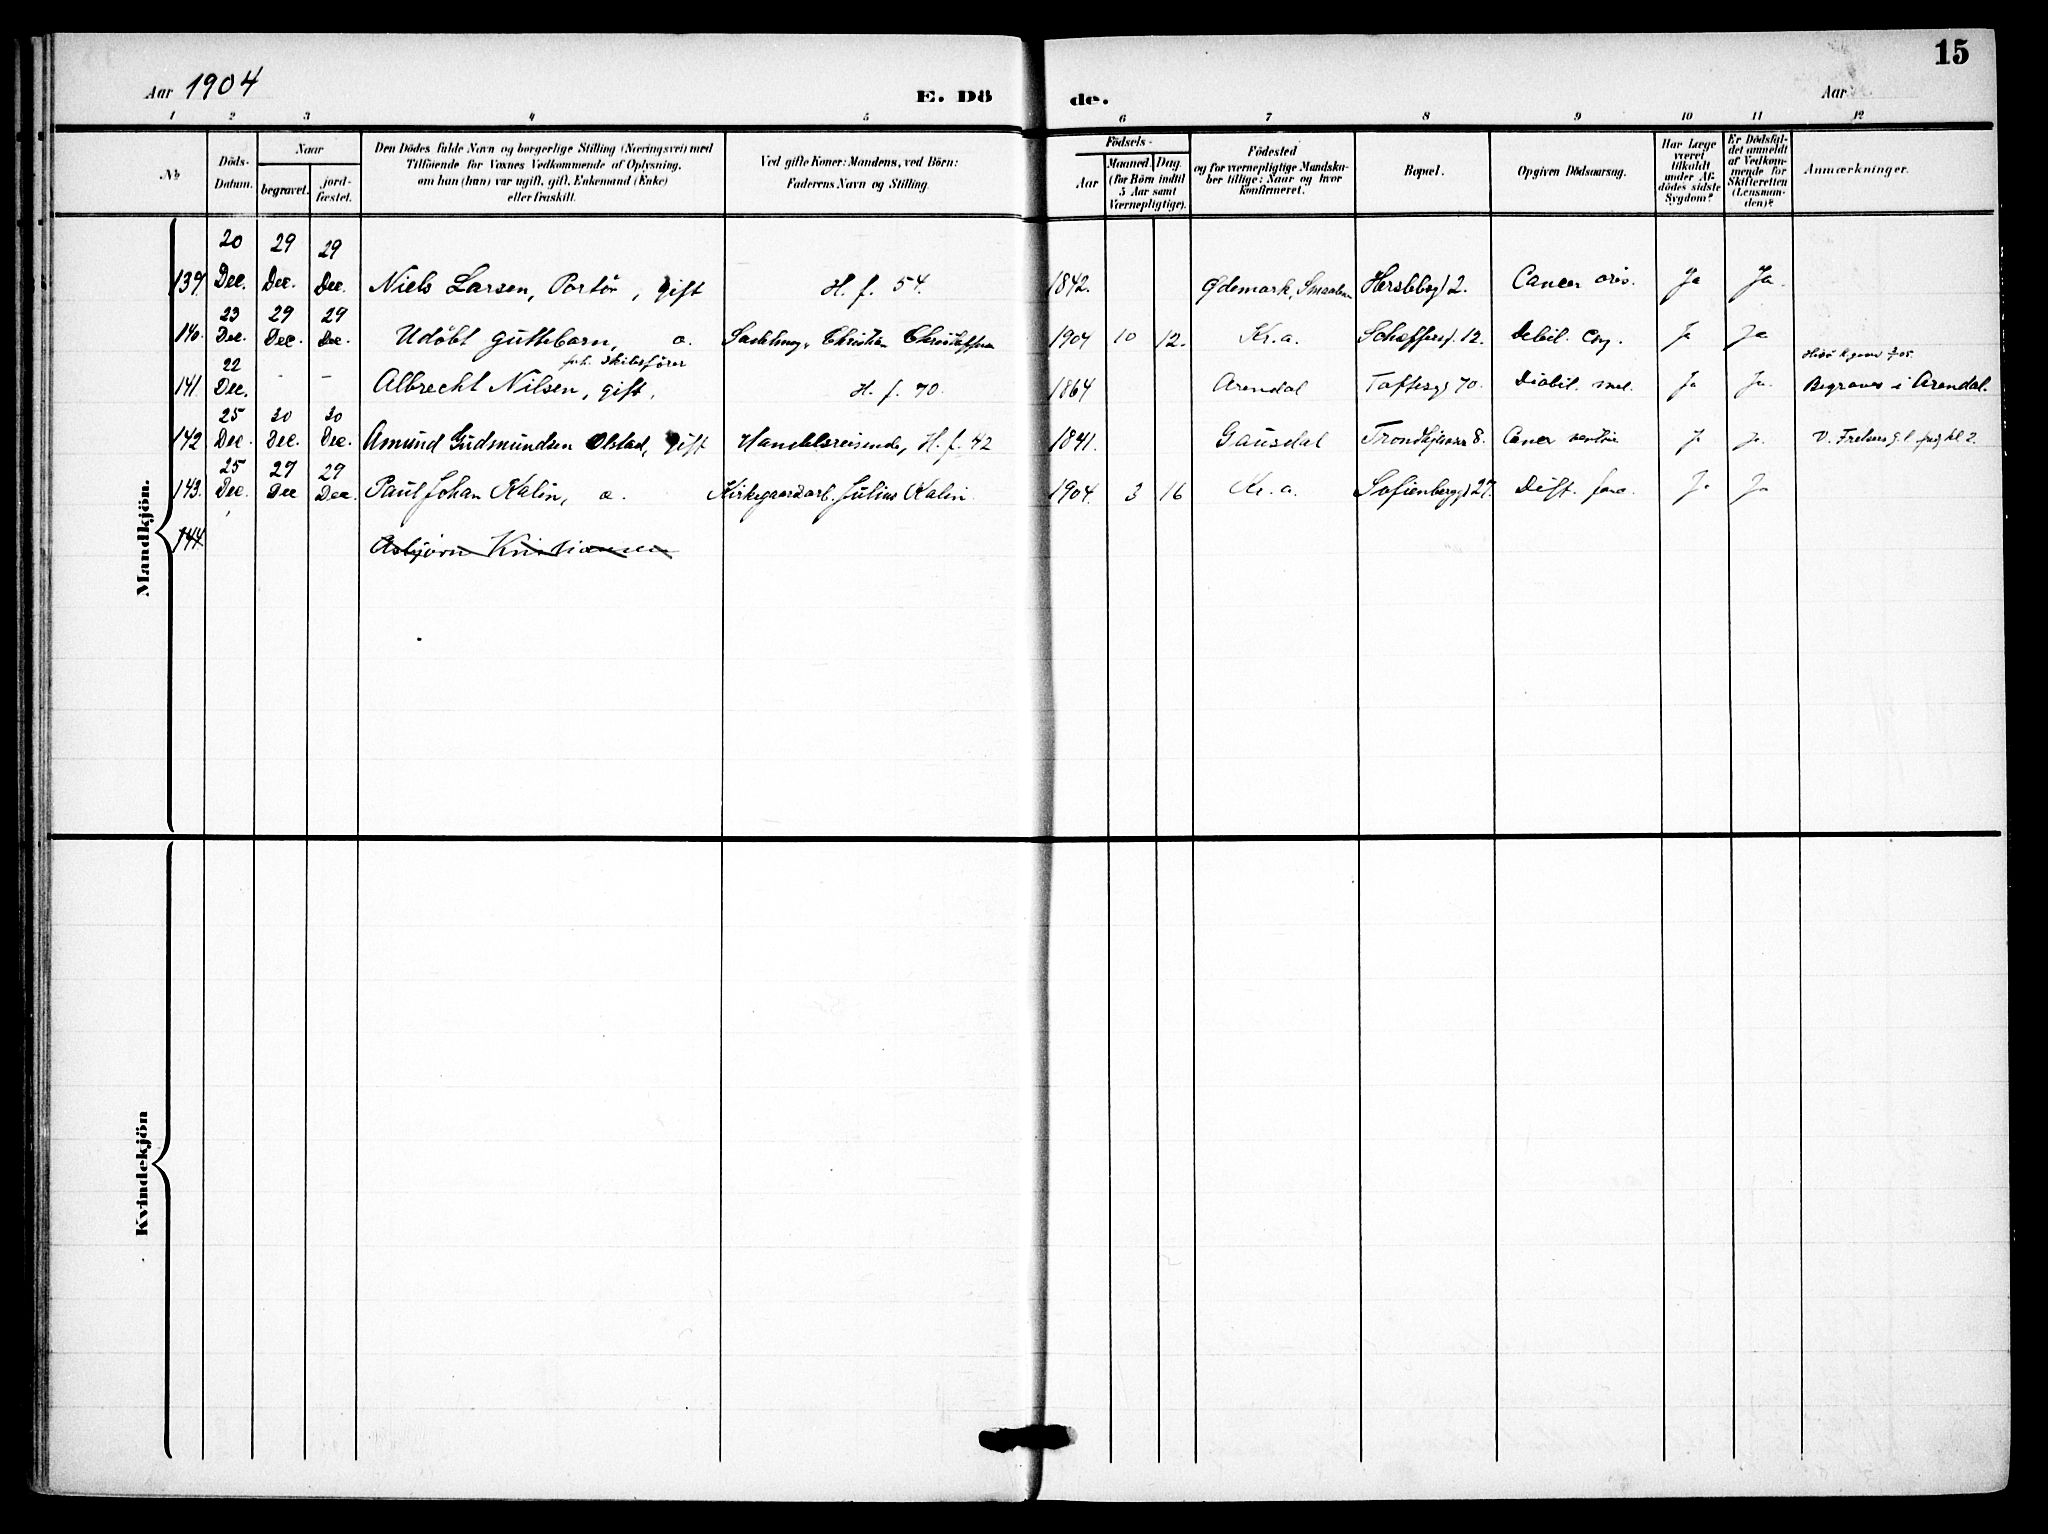 15
Aar 1904
E. Dö de.
Aar
1 2 3 4 5 6 7 8 9 10 11 12
No
Döds-Datum.
Naar
begravet.
jord-fæstet.
Den Dödes fulde Navn og borgerlige Stilling (Næringsvei) med
Tilföiende for Voxnes Vedkommende af Oplysning,
om han (hun) var ugift, gift, Enkemand (Enke)
eller fraskilt.
Ved gifte Koner: Mandens, ved Börn:
Faderens Navn og Stilling.
Födsels-
Aar
Maaned. Dag.
(for Börn indtil
5 Aar samt
Værnepligtige).
Födested
og for værnepligtige Mandska-
ber tillige: Naar og hvor
konfirmeret.
Bopæl.
Opgiven Dödsaarsag.
Har Læge
været
tilkaldt
under Af-
dödes sidste
Sygdom?
Er Dödsfal-
det anmeldt
af Vedkom-
mende for
Skifteretten
(Lensman-
den)?
Anmærkninger.
Mandkjön.
139. 20 Dec. 29 Dec. 29 Dec. Niels Larsen, Portör, gift H. f. 54. 1842. Ødemark, Smaalen Herslebsg 2. Cancer oris. Ja Ja.
140. 23 Dec. 29 Dec. 29 Dec. Udöbt guttebarn, a. Christian 1904 10 12. Kr.a. Scheffersg. 12. Debil. cong. J Ja
141. 22 Dec. - - Albrecht Nilsen, gift, forh. skibsfører H. f. 70. 1864 Arendal Toftesg 70. Diabet. mel. J Ja. Begraves i Arendal.
142 25 Dec. 30 Dec. 30 Dec. Amund Gudmundsen Olstad, gift Handelsreisende, H. f. 42 1841. Gausdal Trondhjemsv 8. Cancer ventric J J. V. Frelsers g.l
143. 25 Dec. 27 Dec 29 Dec. Paul Johan Kalin, a. Kirkegaardsarb. Julius Kalin. 1904. 3 16 Kr.a. Sofienbergg 27. Dift. fauc. J Ja
144. Asbjørn Kristiansen
Kvindekjön